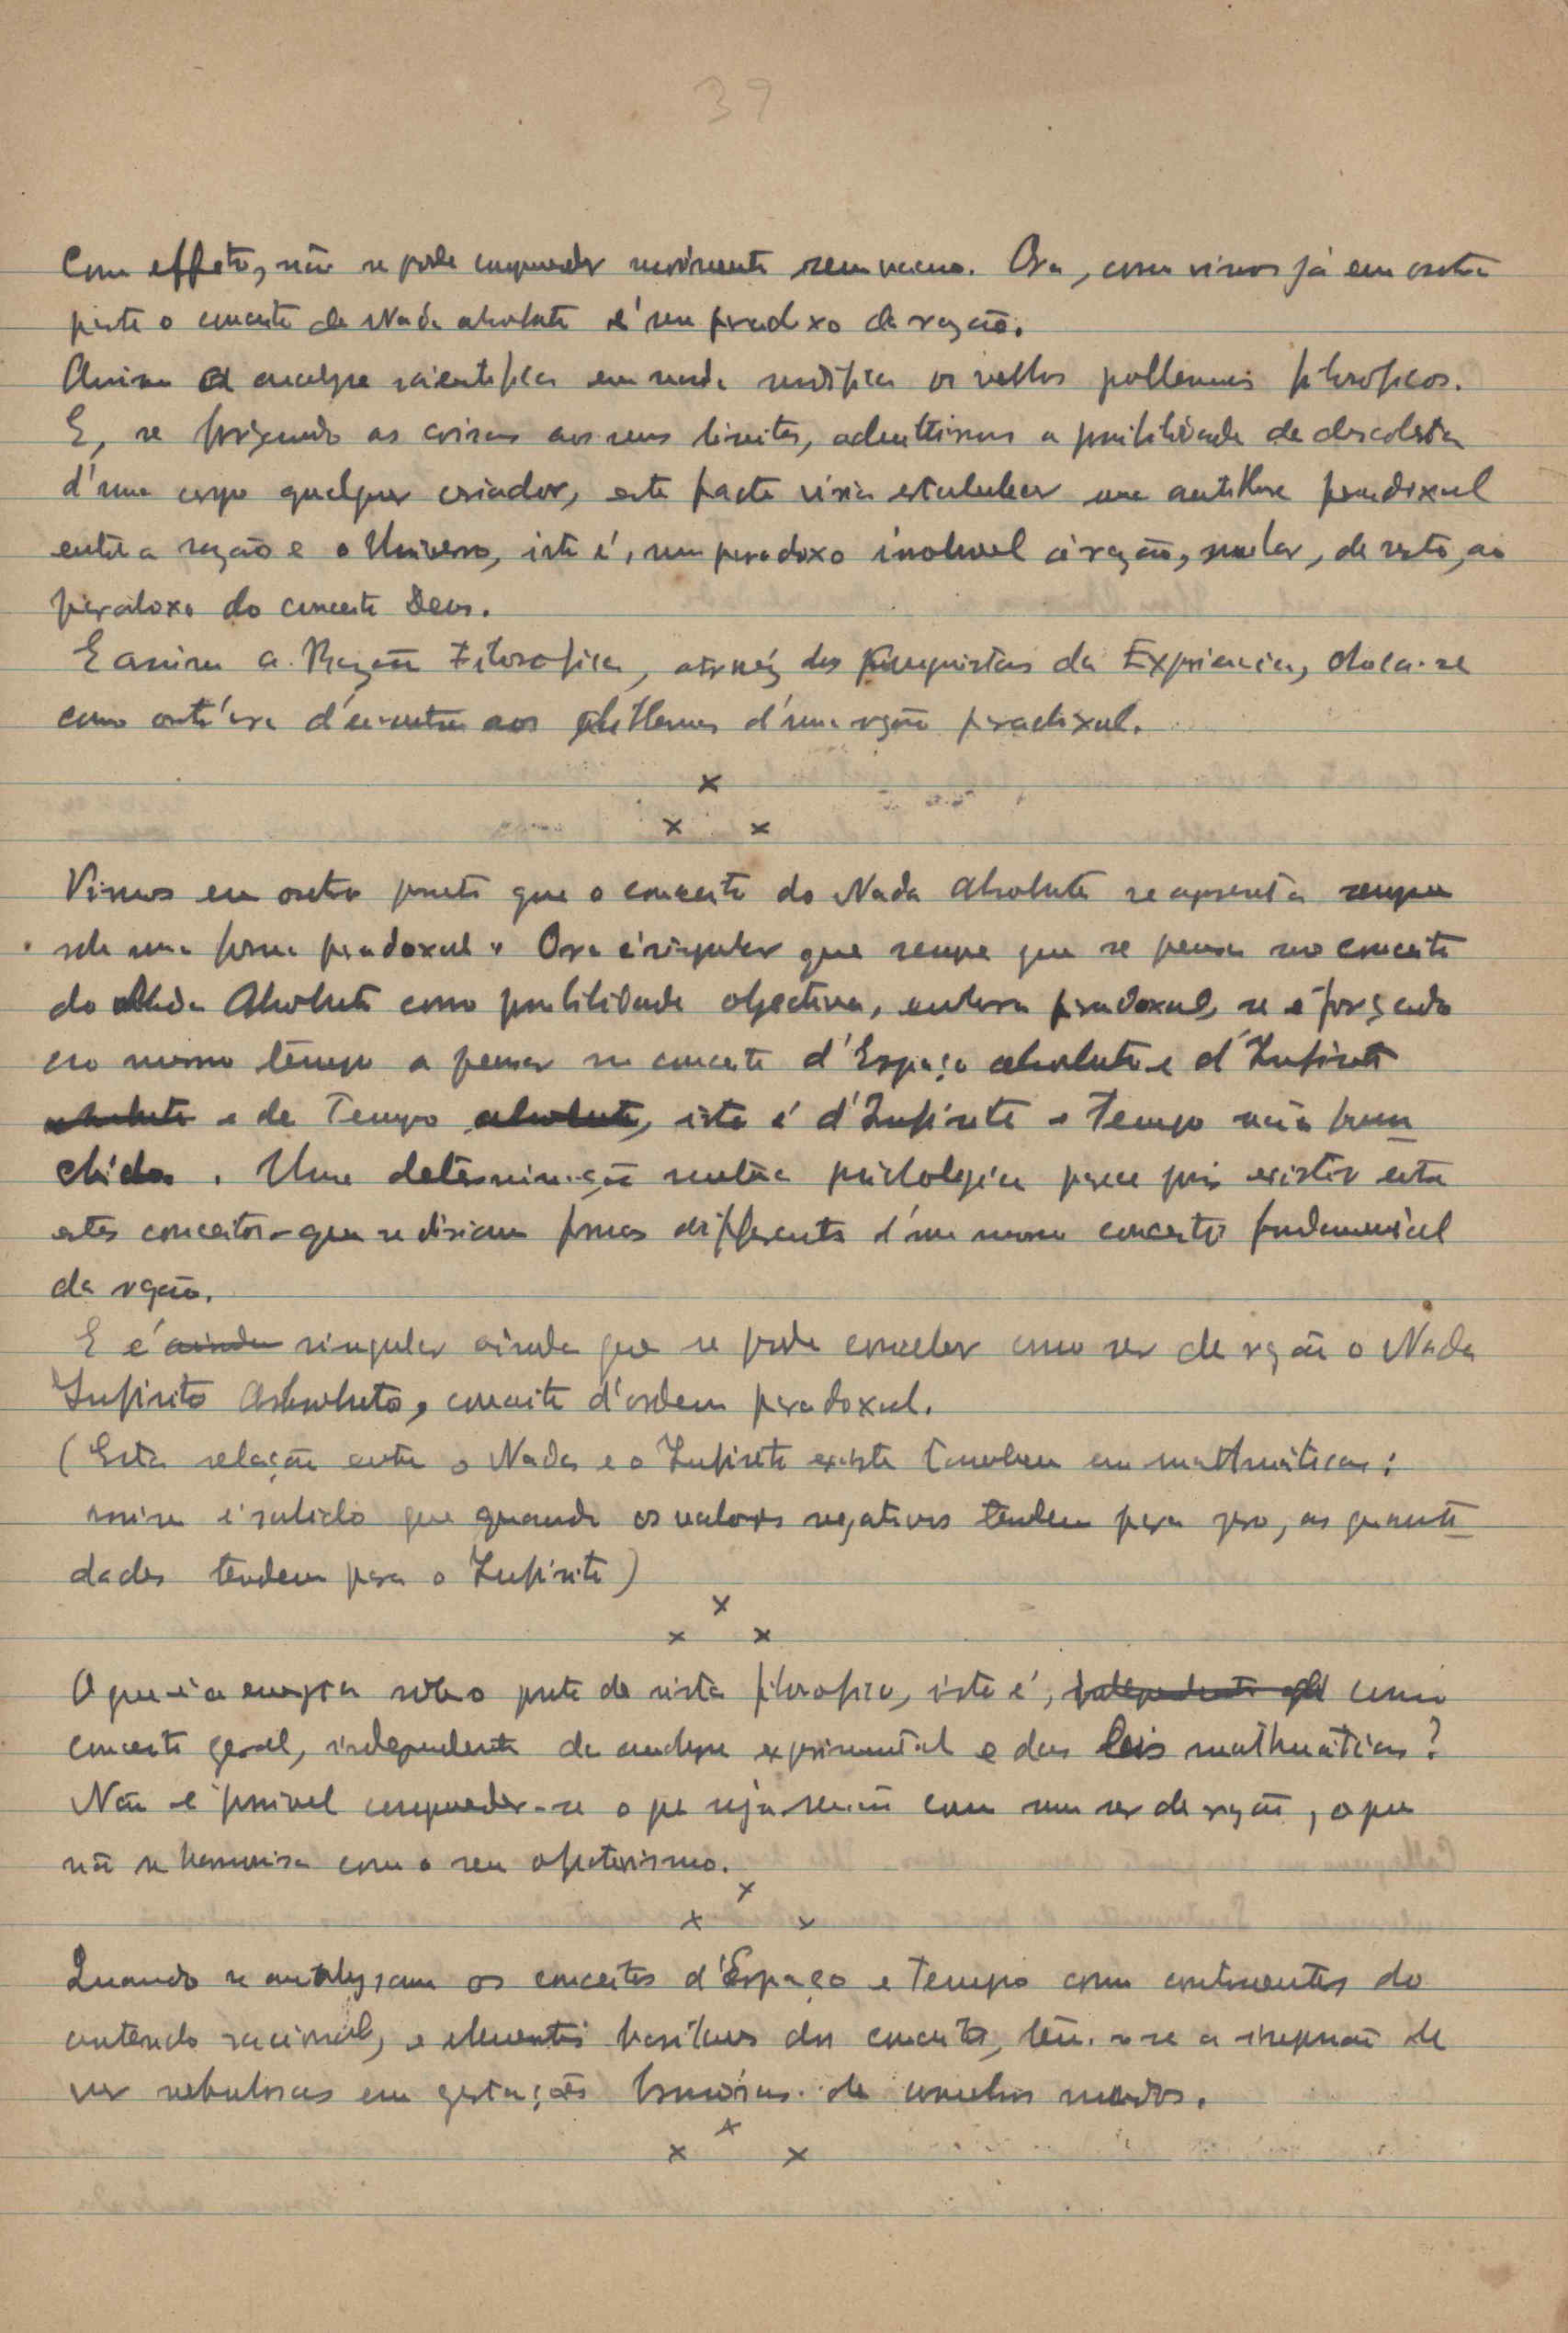 39
Com effeto, não se pode comprender movimento sem vacuo. Ora, como vimos já em outra
parte o conceito de Nada absoluto é um paradoxo da razão.
Assim a analyse scientifica em nada modifica os velhos problemas filosoficos.
E, se forçando as coisas aos seus limites, admittirmos a possibilidade da descoberta
d'um corpo qualquer criador, este facto viria estabelecer uma antithese paradoxal
entre a razão e o Universo, isto é, um paradoxo insoluvel á razão, similar, de resto, ao
paradoxo do conceito Deus.
E assim a Razão Filosofica, através das conquistas da Experiencia, choca-se
como outr'ora d'encontro aos problemas d'uma razão paradoxal.
x
x x
Vimos em outro ponto que o conceito do Nada Absoluto se apresenta sempre
sob uma forma paradoxal. Ora é singular que sempre que se pensa no conceito
do Nada Absoluto como possibilidade objectiva, embora paradoxal, se é forçado
ao mesmo tempo a pensar no conceito d'Espaço absoluto e d'Infinito
absoluto e de Tempo absoluto, isto é d'Infinito e Tempo não preen-
chidos. Uma determinação mutua psicologica parece pois existir entre
estes conceitos - que se diriam formas differentes d'um mesmo conceito fundamental
da razão.
E é ainda singular ainda que se pode conceber como ser de razão o Nada
Infinito Absoluto, conceito d'ordem paradoxal.
(Esta relação entre o Nada e o Infinito existe tambem em mathematicas:
assim é sabido que quando os valores negativos tendem para zero, as quanti-
dades tendem para o Infinito)
x
x x
O que é a energia sob o ponto de vista filosofico, isto é, independente como
conceito geral, independente da analyse experimental e das leis mathematicas?
Não é possivel comprender-se o que seja senão como um ser de razão, o que
não se harmonisa com o seu objectivismo.
x
x x
Quando se analysam os conceitos d'Espaço e Tempo como continentes do
conteudo racional, e elementos basilares dos conceitos, tem-se a impressão de
ver nebulosas em gestações de mundos.
x
x x